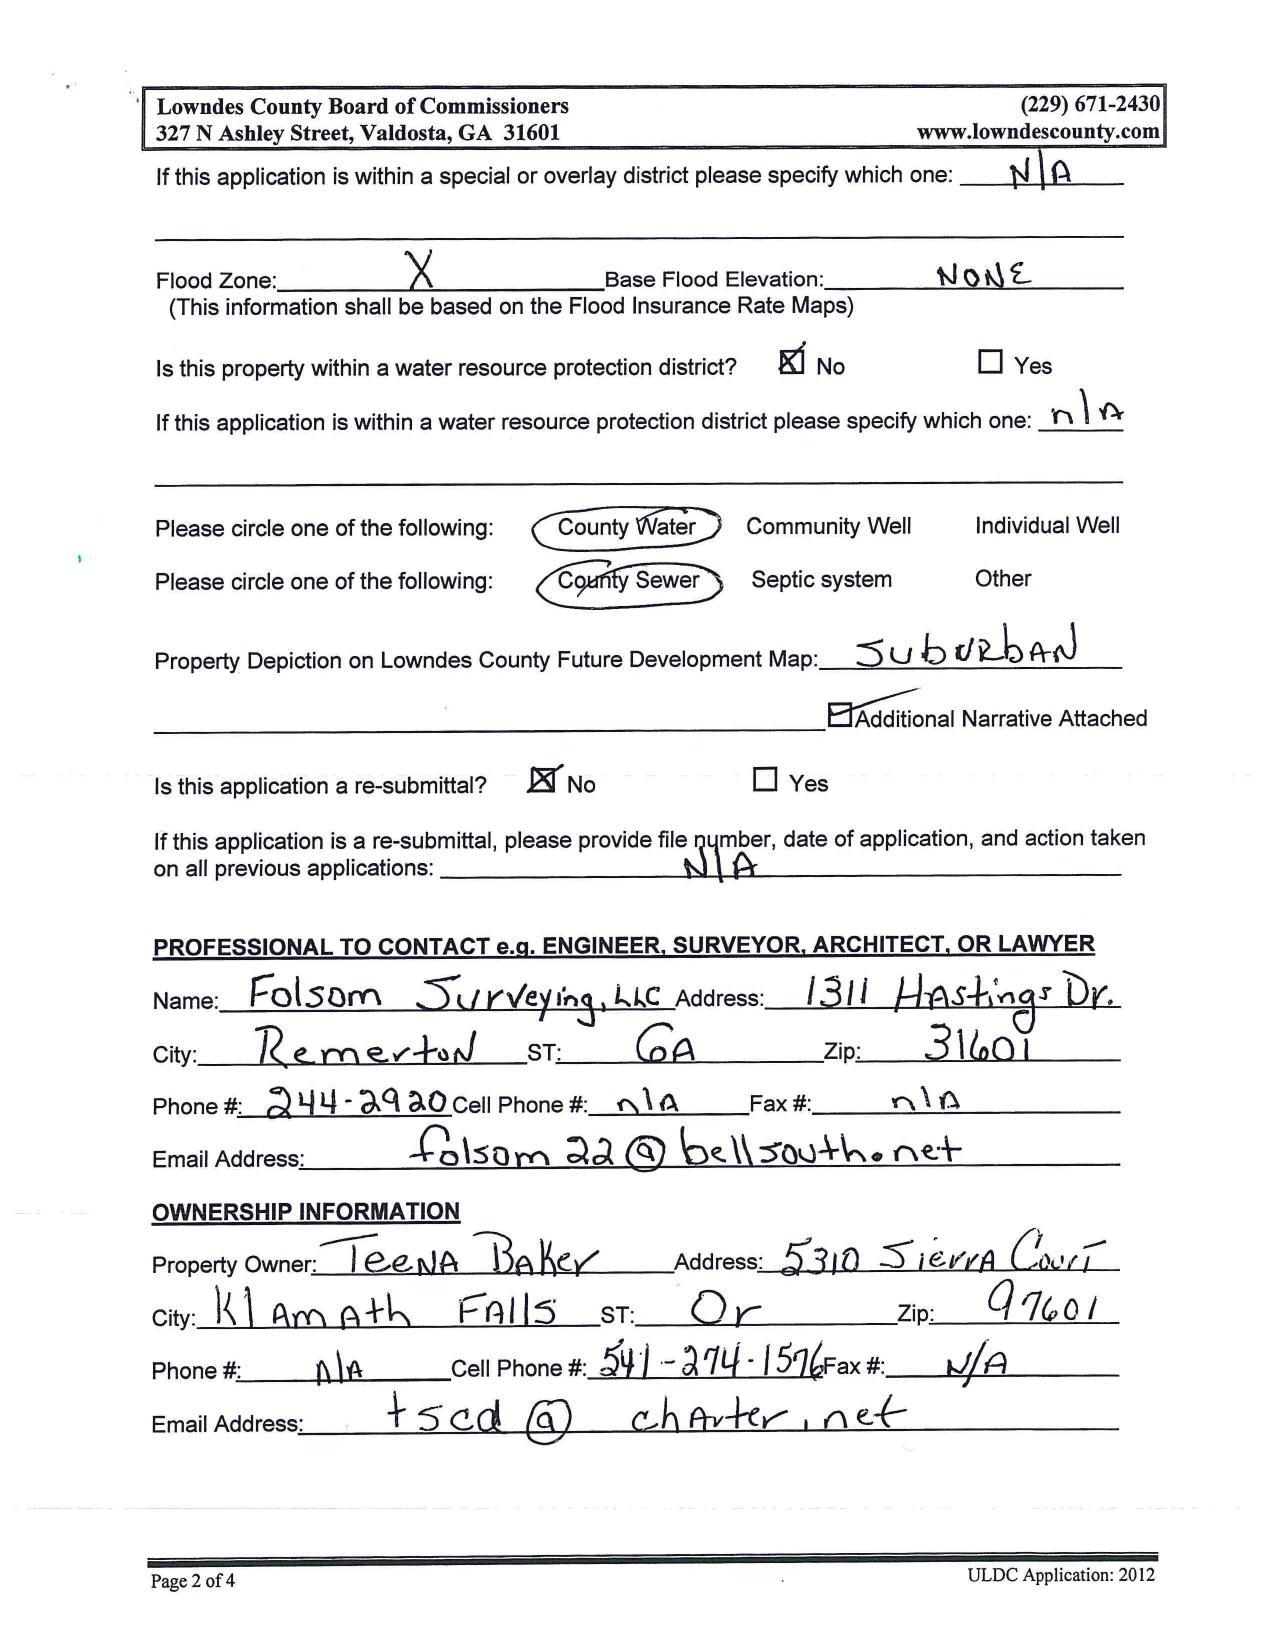 Lowndes County Board of Commissioners (229) 671-2430
327 N Ashley Street, Valdosta, GA 31601 www.lowndescounty.com
If this application is within a special or overlay district please specify which one: N/A
Flood Zone: X Base Flood Elevation: NONE
(This information shall be based on the Flood Insurance Rate Maps)
Is this property within a water resource protection district? ☒ No ☐ Yes
If this application is within a water resource protection district please specify which one: n/A
Please circle one of the following: County Water Community Well Individual Well
Please circle one of the following: County Sewer Septic system Other
Property Depiction on Lowndes County Future Development Map: SubURbAN
☑ Additional Narrative Attached
Is this application a re-submittal? ☒ No ☐ Yes
If this application is a re-submittal, please provide file number, date of application, and action taken
on all previous applications: N/A
PROFESSIONAL TO CONTACT e.g. ENGINEER, SURVEYOR, ARCHITECT, OR LAWYER
Name: Folsom Surveying, LLC Address: 1311 HAstings Dr.
City: RemertoN ST: GA Zip: 31601
Phone #: 244-2920 Cell Phone #: n/A Fax #: n/A
Email Address: folsom22@bellsouth.net
OWNERSHIP INFORMATION
Property Owner: TeeNA BAKer Address: 5310 SierrA Court
City: KlAmAth FAllS ST: Or Zip: 97601
Phone #: n/A Cell Phone #: 541-274-1576 Fax #: N/A
Email Address: tscd@chArter.net
Page 2 of 4 ULDC Application: 2012